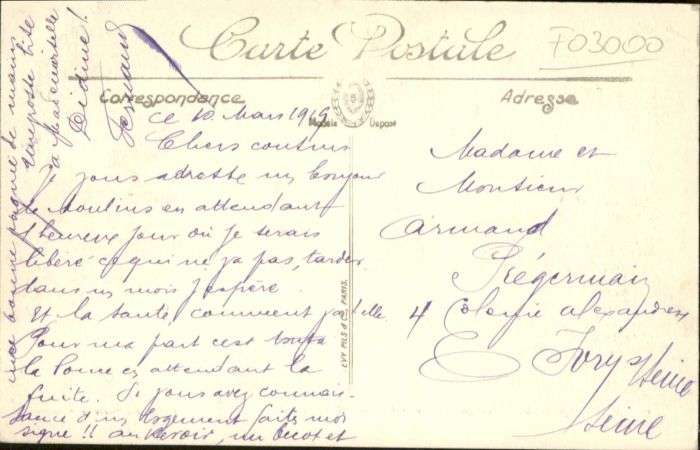 Carte Postale
F03000
Correspondance
Adresse
Modèle Déposé
ce 10 Mars 1919
Chers cousins
Je vous adresse un bonjour
de Moulins en attendant
l'heureux jour où je serais
libéré ce qui ne va pas, tarder
dans un mois j'espère.
Et la santé comment va t elle
Pour ma part c'est toujours
la Pome en attendant la
suite. Si vous avez connais-
sance d'un logement faites moi
signe !! au revoir, un bécot et
une bonne poignée de mains
Didine !
Fernand
Madame et
Monsieur
Armand
Prégermain
4 Colonie Alexandre
Ivry s/Seine
Seine
LEVY FILS & Cie, PARIS.